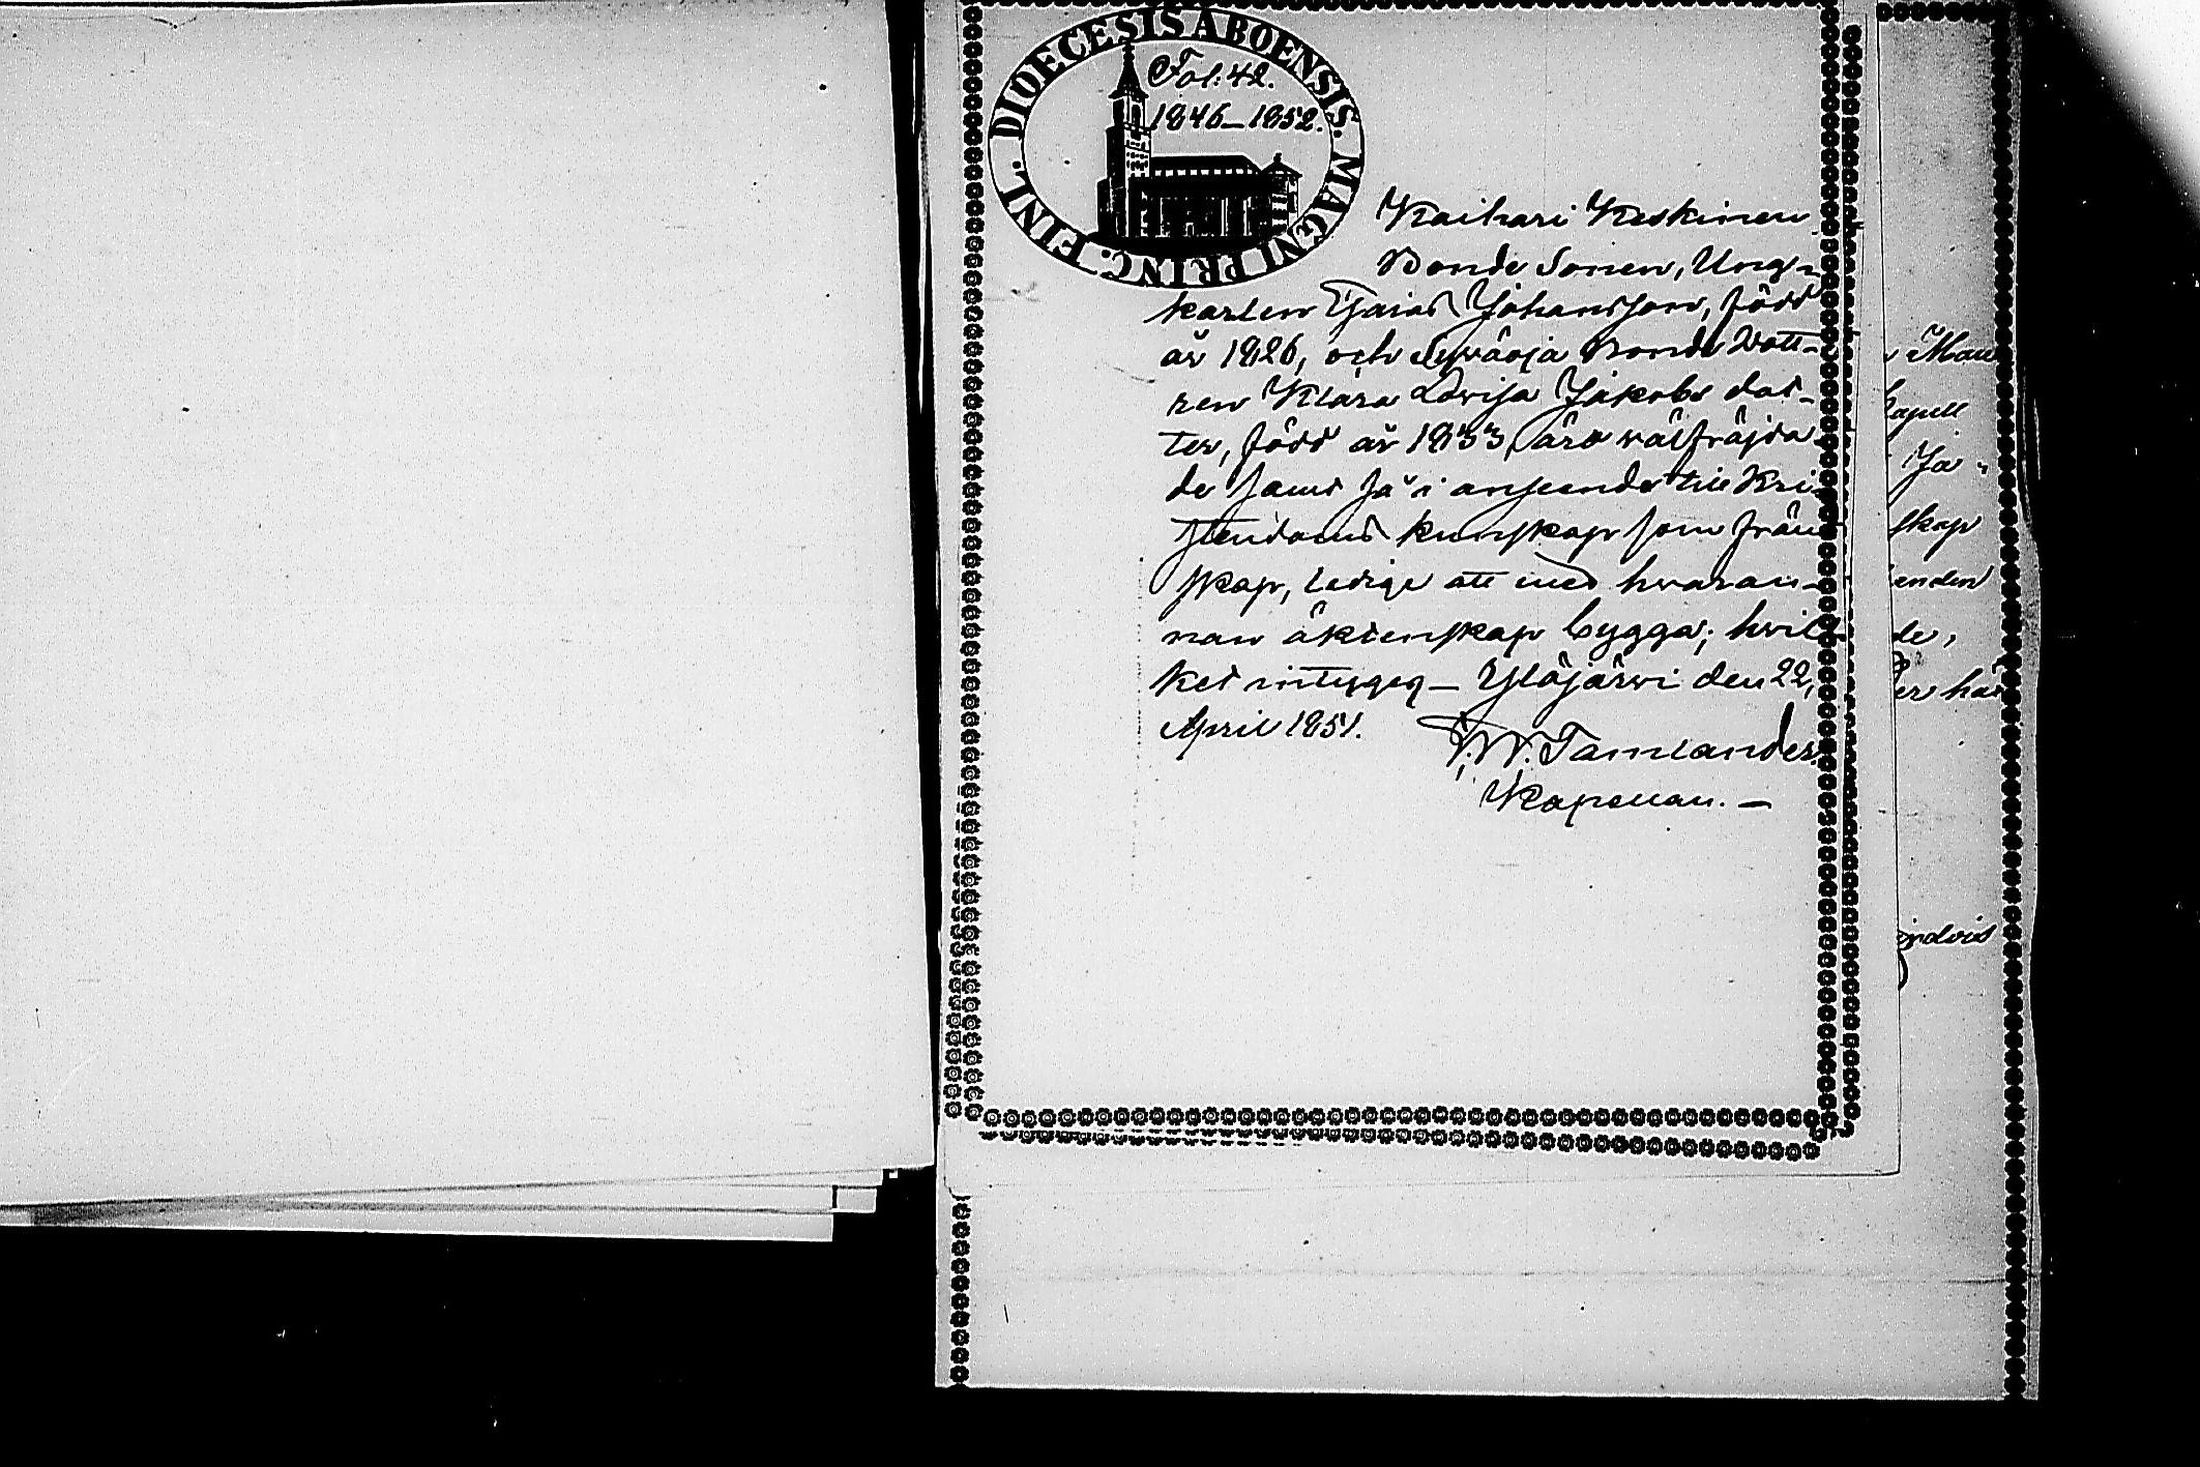 DIOECESIS ABOENSIS. MAGNI PRINC. FINL.
Fol. 42.
1846–1852.
Kaihari Keskinen
Bonde Sonen, Ung-
karlen Esaias Johansson, född
år 1826, och Bonde Dott-
ren Klara Lovisa Jakobs dot-
ter, född år 1833, äro välfräjda-
de samt så i anseende till Kri-
stendoms kunskap som främ
skap, ledige att med hvaran-
nan äktenskap bygga; hvil-
ket intygeg — Ylöjärvi den 22,
April 1851.
W. Tamlander
Kapellan. —
kapell
Ja-
skap
enden
de,
er här